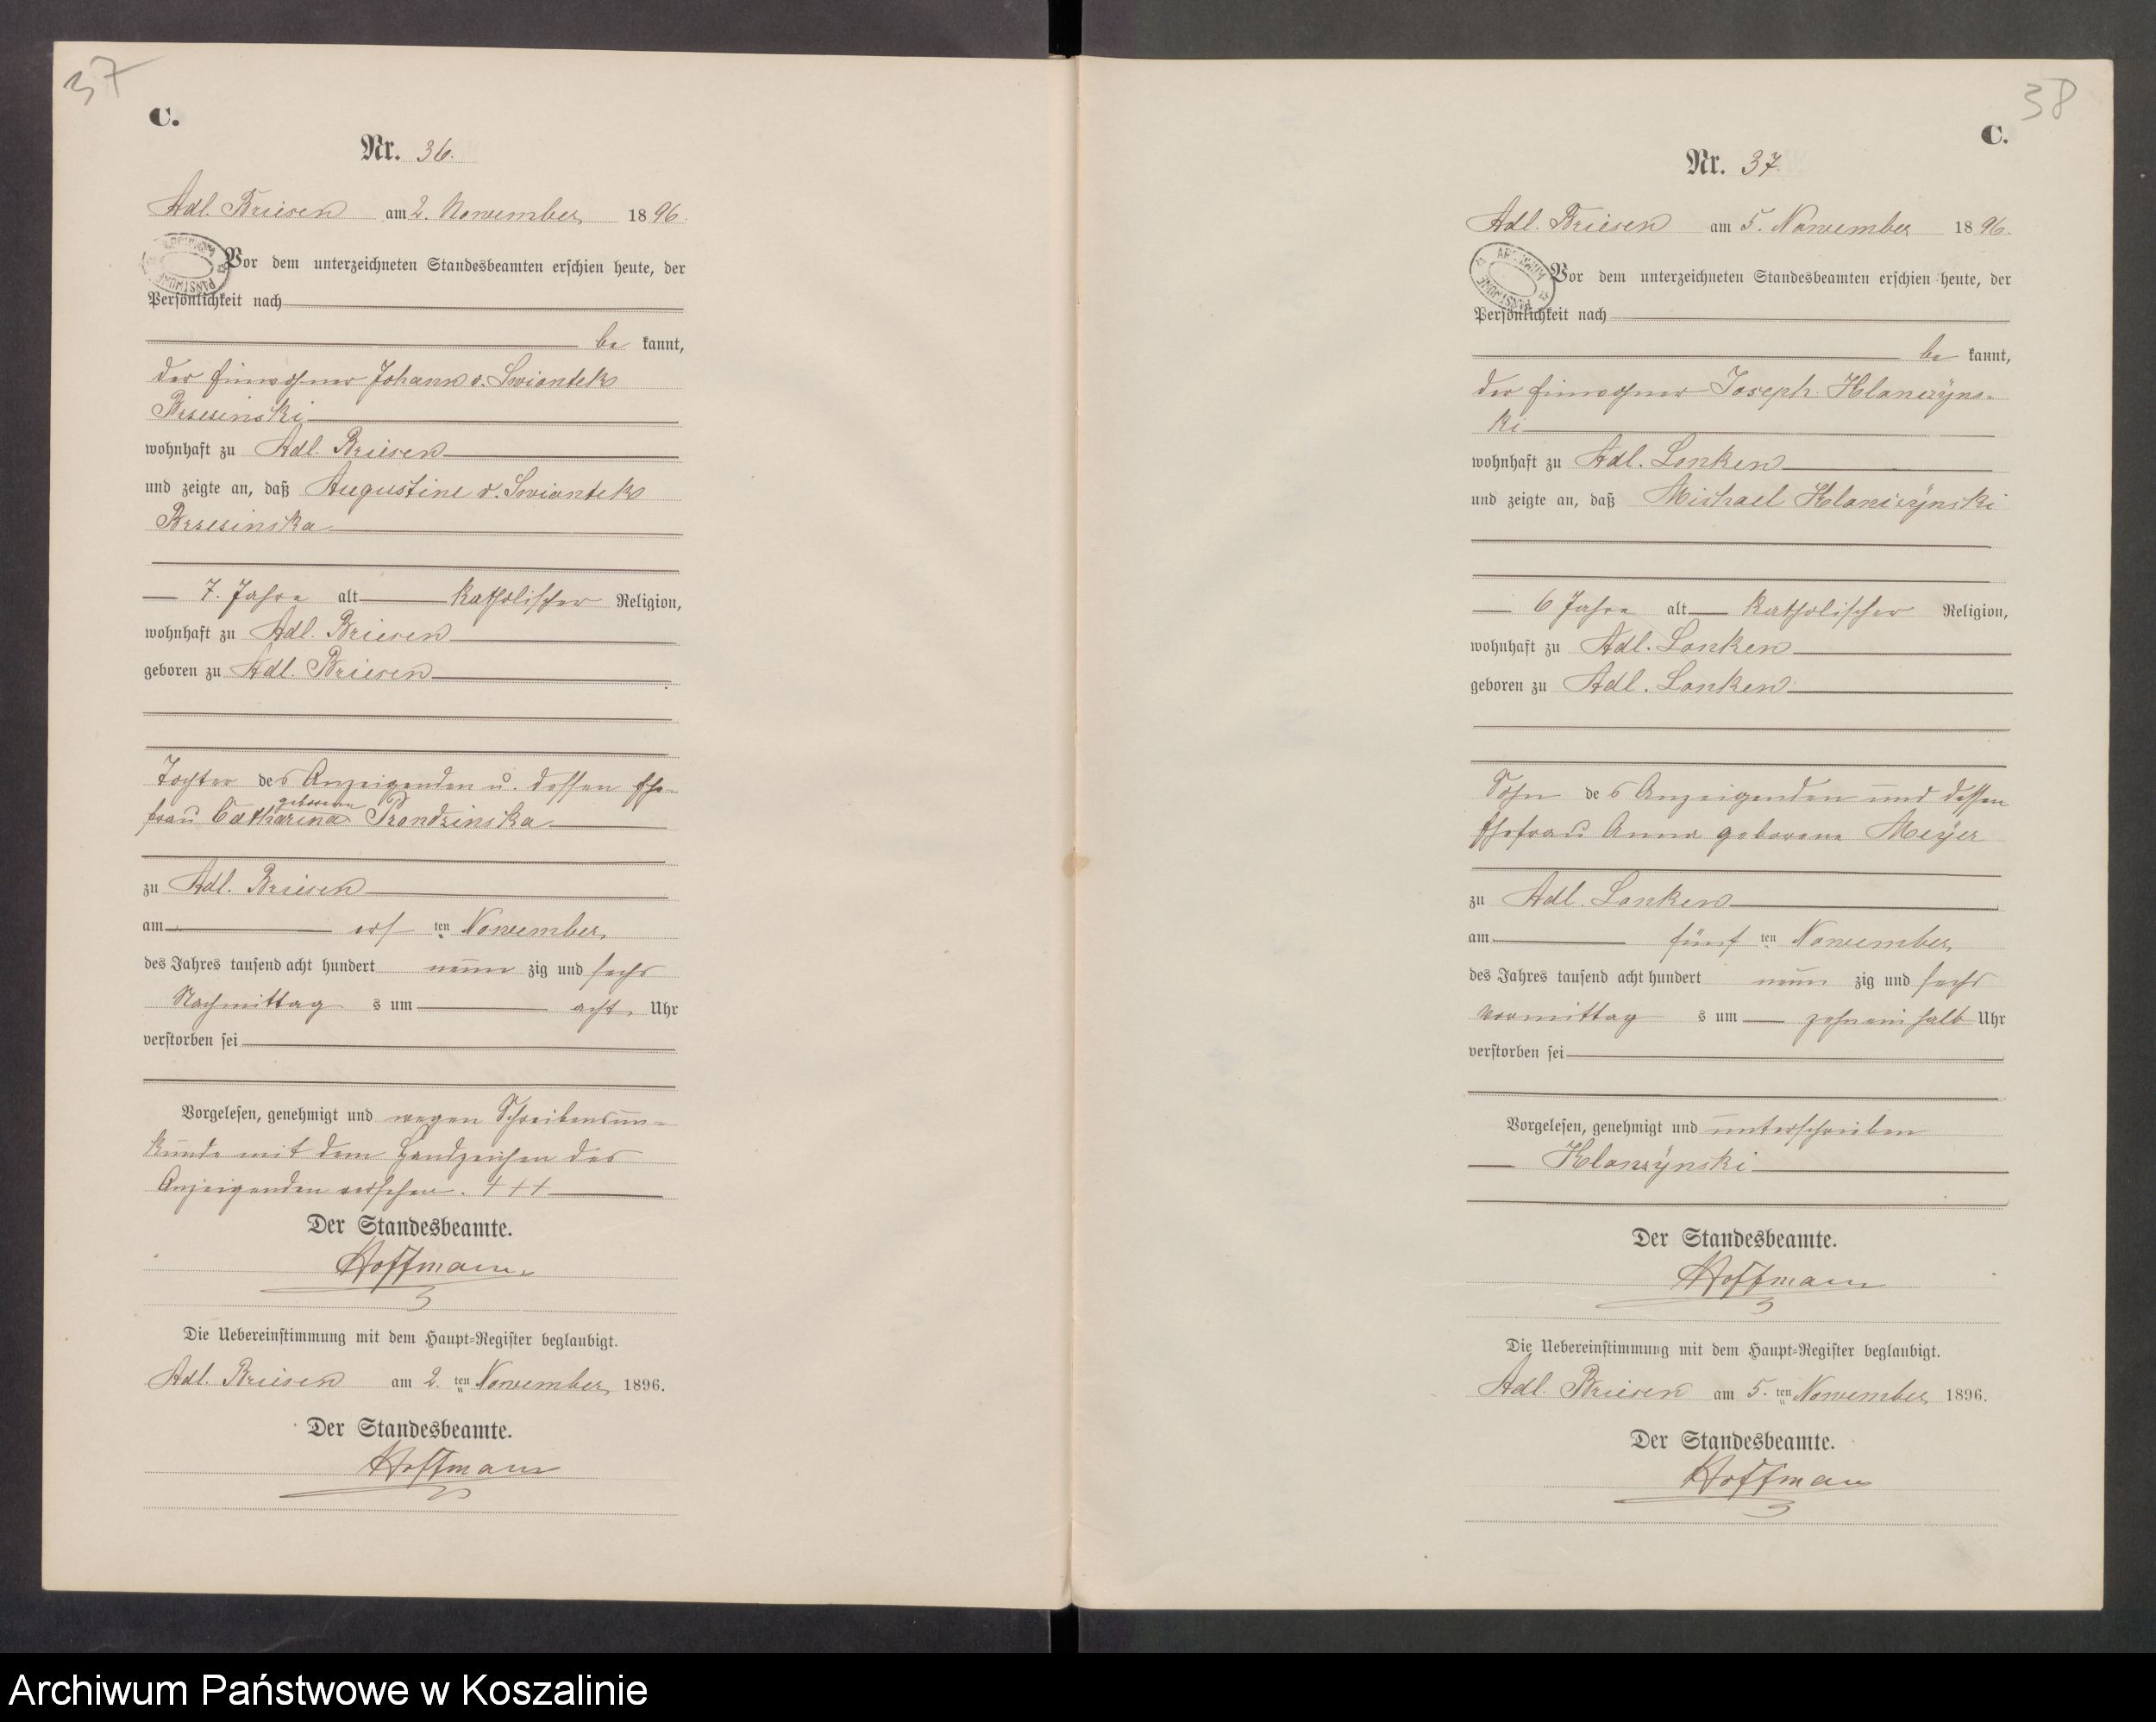 37
C.
Nr. 36.
Adl. Briesen am 2. November 1896.
Vor dem unterzeichneten Standesbeamten erschien heute, der
Persönlichkeit nach
be kannt,
der Einwohner Johann v. Swiontek
Brsesinski
wohnhaft zu Adl. Briesen
und zeigte an, daß Augustine v. Swiontek
Brsesinska
7. Jahre alt katholischer Religion,
wohnhaft zu Adl. Briesen
geboren zu Adl. Briesen
Tochter des Anzeigenden u. dessen Ehe-
geborene
frau Catharina Prondzinska
zu Adl. Briesen
am ers ten November
des Jahres tausend acht hundert neun zig und sechs
Nachmittag s um acht Uhr
verstorben sei
Vorgelesen, genehmigt und wegen Schreibensun-
kunde mit dem Handzeichen des
Anzeigenden versehen. +++
Der Standesbeamte.
Hoffmann
Die Uebereinstimmung mit dem Haupt-Register beglaubigt.
Adl. Briesen am 2. ten November 1896.
Der Standesbeamte.
Hoffmann
38
C.
Nr. 37.
Adl. Briesen am 5. November 1896.
ARCHIWUM PAŃSTWOWE
Vor dem unterzeichneten Standesbeamten erschien heute, der
Persönlichkeit nach
be kannt,
der Einwohner Joseph Klonczÿns-
ki
wohnhaft zu Adl. Lonken
und zeigte an, daß Michael Klonczÿnski
6 Jahre alt katholischer Religion,
wohnhaft zu Adl. Lonken
geboren zu Adl. Lonken
Sohn des Anzeigenden und dessen
Ehefrau Anna geborene Meÿer
zu Adl. Lonken
am fünf ten November
des Jahres tausend acht hundert neun zig und sechs
Vormittag s um zehneinhalb Uhr
verstorben sei
Vorgelesen, genehmigt und unterschrieben
Klonzÿnski
Der Standesbeamte.
Hoffmann
Die Uebereinstimmung mit dem Haupt-Register beglaubigt.
Adl. Briesen am 5. ten November 1896.
Der Standesbeamte.
Hoffmann
Archiwum Państwowe w Koszalinie